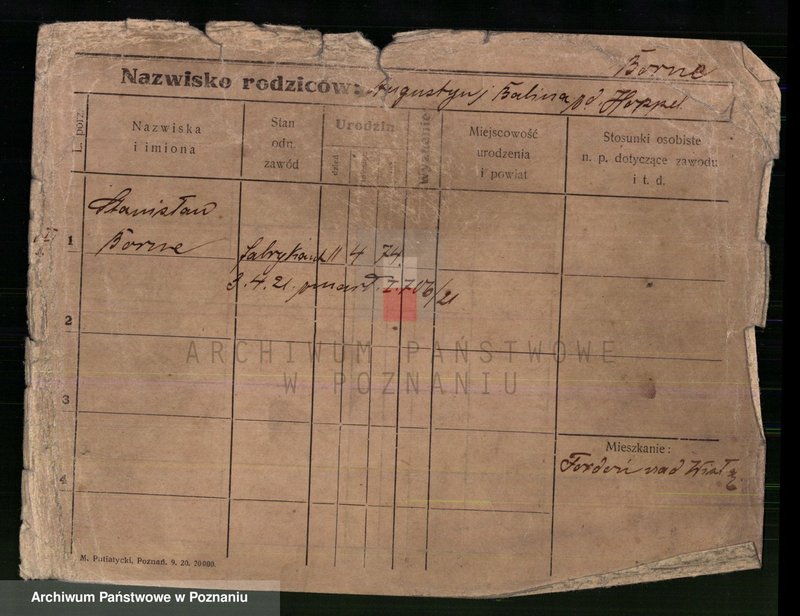 Borne
Nazwisko rodziców: Augustyn i Balina pd Hoppel
L. porz.
Nazwiska
i imiona
Stan
odn.
zawód
Urodzin
dzień
wyznanie
Miejscowość
urodzenia
i powiat
Stosunki osobiste
n. p. dotyczące zawodu
i t. d.
1
Stanisław
Borne
fabrykant 11 4 74.
3.4.21 zmarł
06/21
2
ARCHIWUM PAŃSTWOWE
W POZNANIU
3
Mieszkanie:
Fordoń nad Wisłą
4
M. Putiatycki, Poznań. 9. 20. 20000.
Archiwum Państwowe w Poznaniu